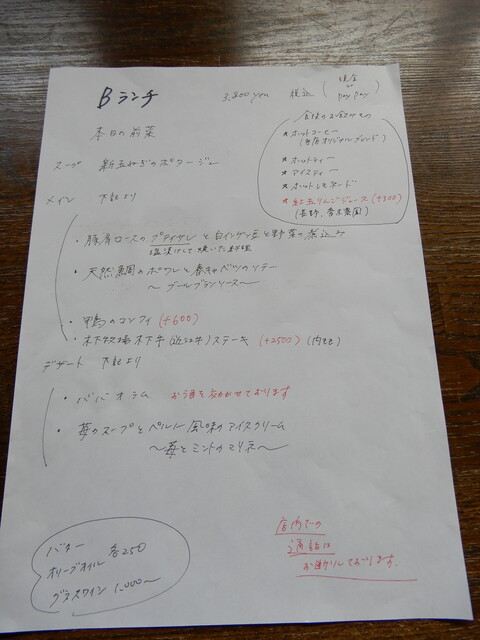 Bランチ 3,800yen 税込 (現金 or pay pay)
本日の前菜
スープ 新玉ねぎのポタージュ
メイン 下記より
食後のお飲みもの
★ホットコーヒー
(当店オリジナルブレンド)
★ホットティー
★アイスティー
★ホットレモネード
★紅玉りんごジュース (+300)
(長野、 農園)
・豚肩ロースのプティサレと白インゲン豆と野菜の煮込み
塩漬けして焼いた
・天然真鯛のポワレと春キャベツのソテー
～ブールブランソース～
・鴨のコンフィ (+600)
・木下牧場木下牛(近江牛)ステーキ (+2500) (内モモ)
デザート 下記より
・ババオラム お酒を効かせております
・苺のスープとペルノー風味のアイスクリーム
～苺とミントのマリネ～
バター
オリーブオイル 各250
グラスワイン 1,000～
店内での
通話は
お断りしております。